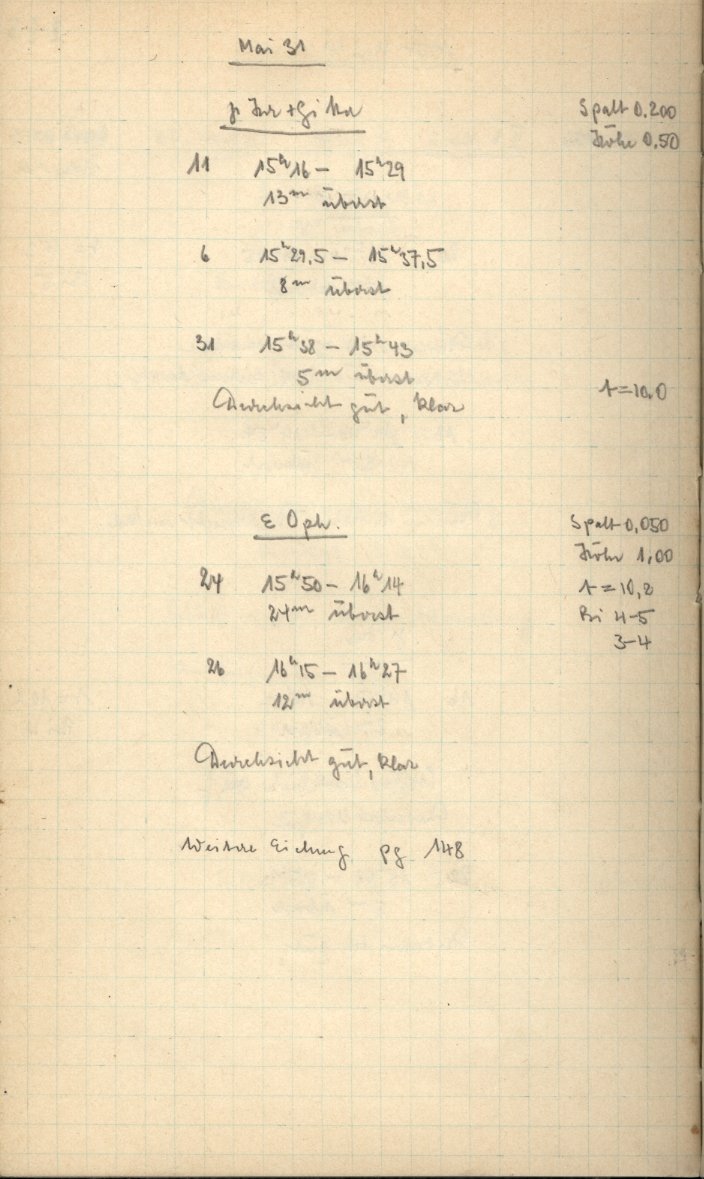 Mai 31
Spalt 0.200
Höhe 0.50
11 15ʰ16 – 15ʰ29
13ᵐ überst
6 15ʰ29,5 – 15ʰ37,5
8ᵐ überst
31 15ʰ38 – 15ʰ43
5ᵐ überst
t=10,0
Durchsicht gut, klar
ε Oph.
Spalt 0,050
Höhe 1,00
24 15ʰ50 – 16ʰ14
t=10,2
24ᵐ überst
Bi 4-5
3-4
26 16ʰ15 – 16ʰ27
12ᵐ überst
Durchsicht gut, klar
Weitere Eichung pg 148